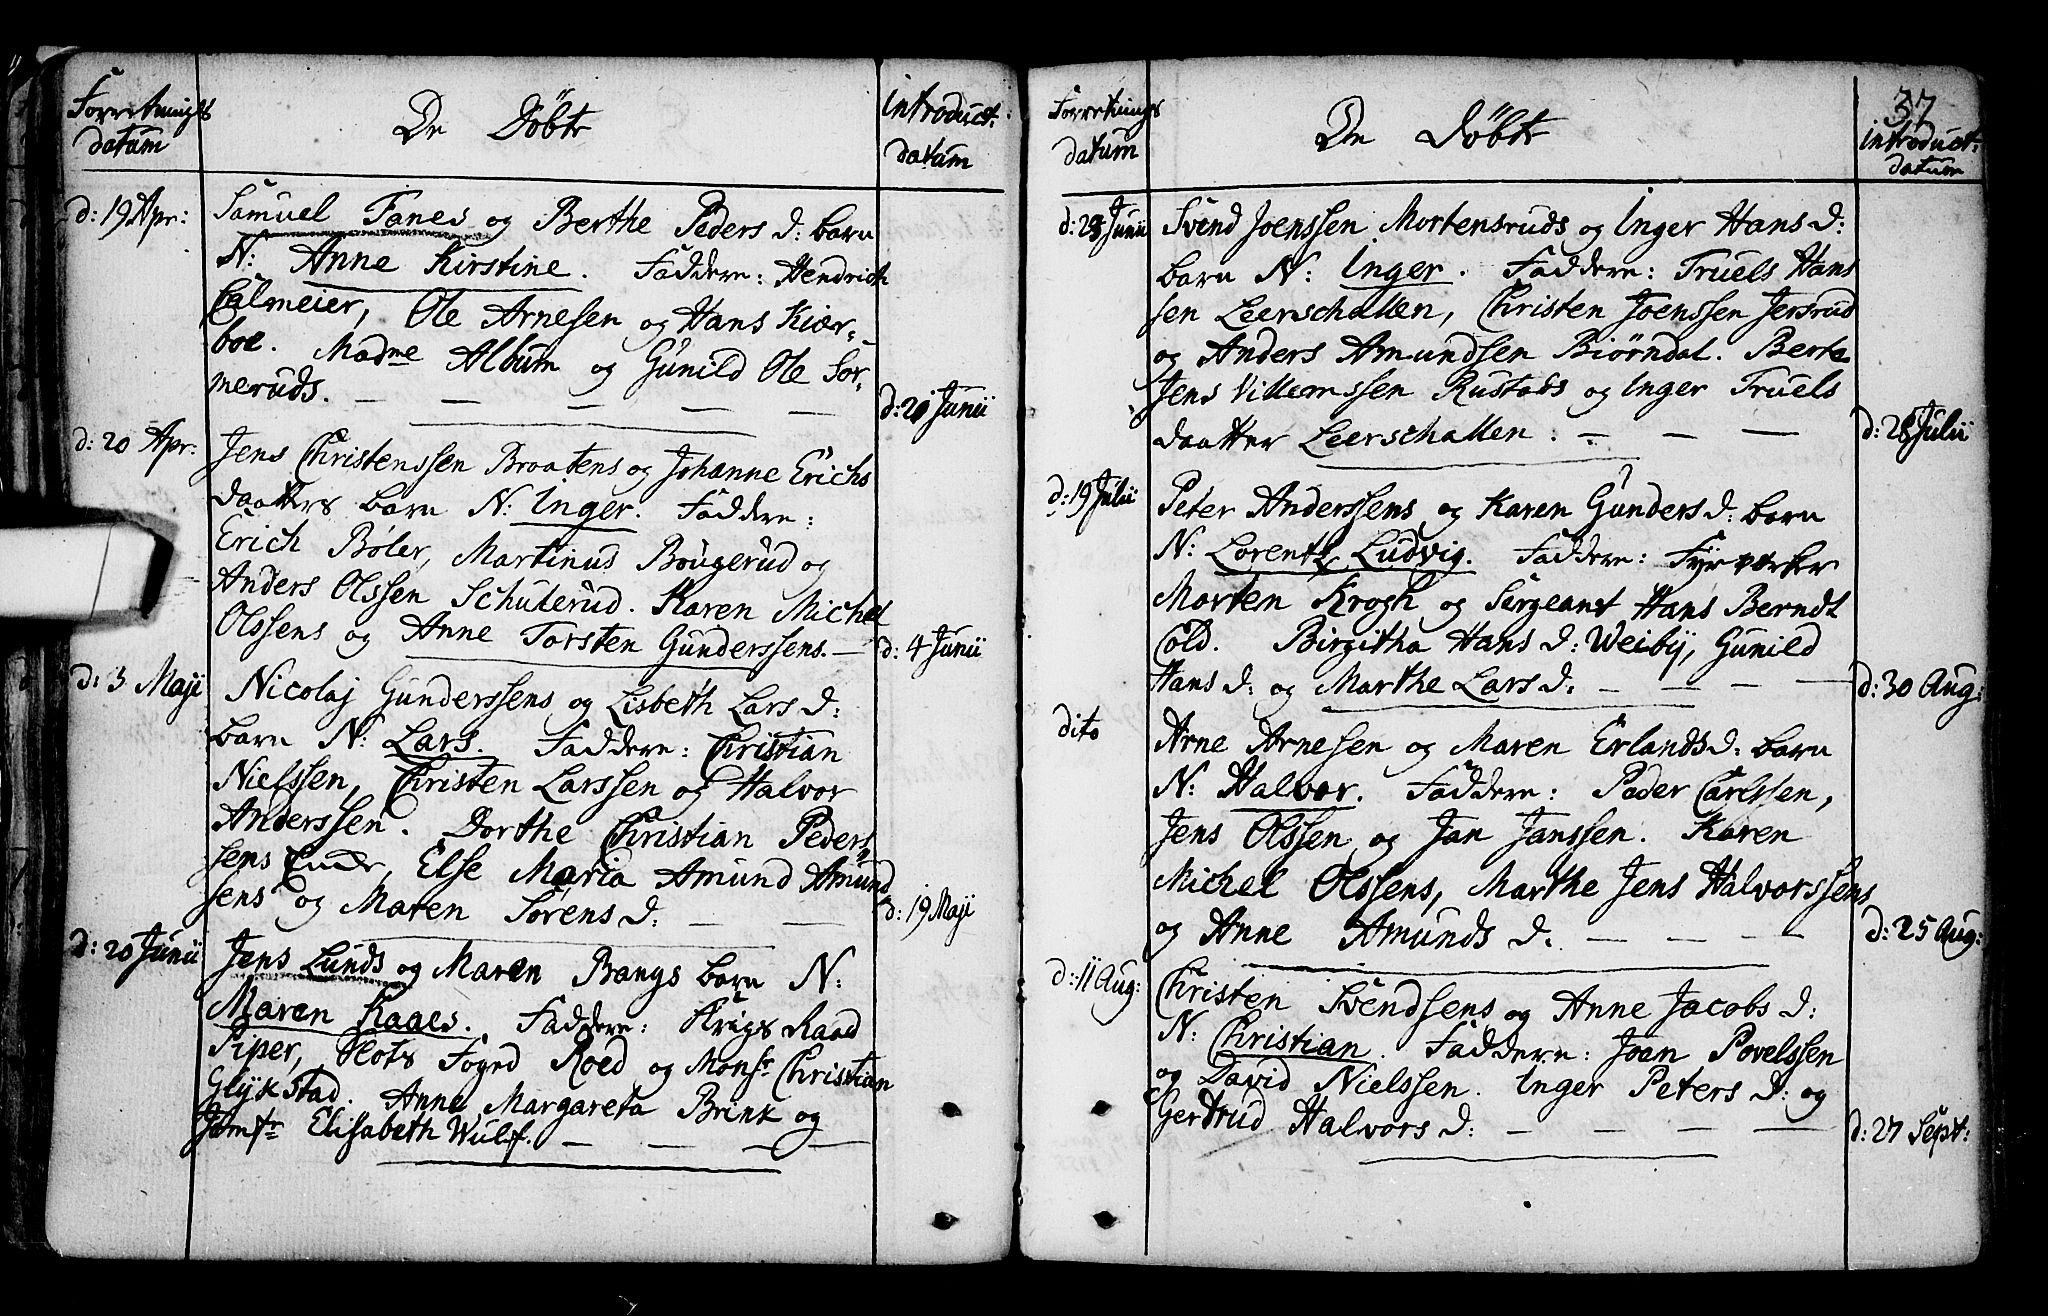 Forretnings
datum
De Döbte
introduct:
datum
d: 19 Apr:
Samuel Fanes og Berthe Peders d: barn
N: Anne Kirstine. Faddere: Hendrich
Calmeier, Ole Arnesen og Hans Kiær-
boe. Madme Album og Gunild Ole Sör-
meruds. — — — — —
d: 21 Junii
d: 20 Apr:
Jens Christenssen Braatens og Johanne Erichs
daatters barn N: Inger. Faddere:
Erich Böler, Martinus Bougerud og
Anders Olssen Schulerud. Karen Michel
Olssens og Anne Torsten Gunderssens. —
d: 4 Junii
d: 3 Maji
Nicolaj Gunderssens og Lisbeth Lars d:
barn N: Lars. Faddere: Christian
Nielssen, Christen Larssen og Halvor
Anderssen. Dorthe Christian Peders
sens Else Maria Amund Amund
sens og Maren Sörens d: — —
d: 19 Maji
d: 20 Junii
Jens Lunds og Maren Bangs barn N:
Maren Kaaes. Faddere: Krigs Raad
Piper, Slots Foged Roed og Monsr Christian
Glykstad. Anne Margareta Brink og
Jomfr Elisabeth Wulf. — — — —
37
Forretnings
datum
De Döbte
introduct:
datum
d: 28 Junii
Svend Joenssen Mortensruds og Inger Hans d:
barn N: Inger. Faddere: Truels Hans
sen Leerschallen, Christen Joenssen Jersrud
og Anders Amundsen Biörndal. Berte
Jens Villemssen Rustads og Inger Truels
daatter Leerschallen. — — —
d: 28 Julii
d: 19 Julii
Peter Anderssens og Karen Gunders d: barn
N: Lorentz Ludvig. Faddere: Fyrværker
Morten Krogh og Sergeant Hans Berndt
Cold. Birgitha Hans d: Weibÿ, Gunild
Hans d: og Marthe Lars d: — — — —
d: 30 Aug:
dito
Arne Arnesen og Maren Erlands d: barn
N: Halvor. Faddere: Peder Carlssen,
Jens Olssen og Jan Janssen. Karen
Michel Olssens, Marthe Jens Halvorssens
og Anne Amunds d: — — — —
d: 25 Aug:
d: 11 Aug:
Christen Svendsens og Anne Jacobs d:
N: Christian. Faddere: Joan Povelssen
og David Nielssen. Inger Peters d: og
Gertrud Halvors d: — — — —
d: 27 Sept: